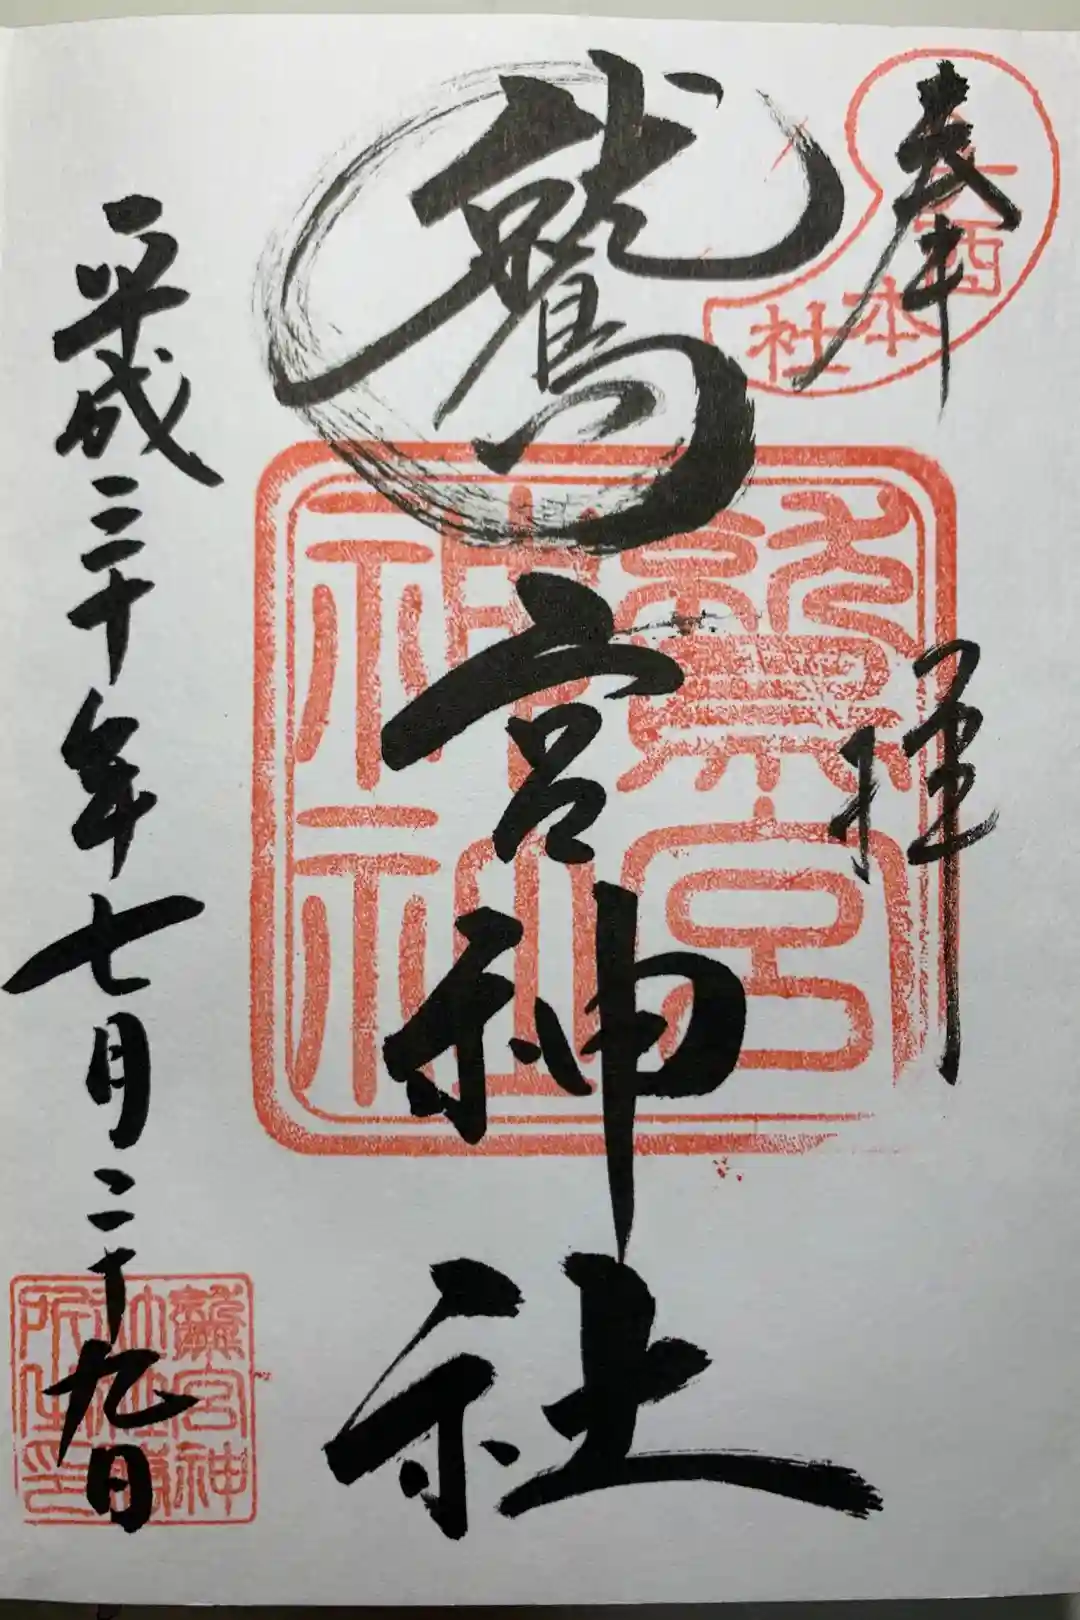 奉拝
酉
本
社
鷲宮神社
鷲宮
神社
平成三十年七月二十九日
鷲宮神
社社務
所之印